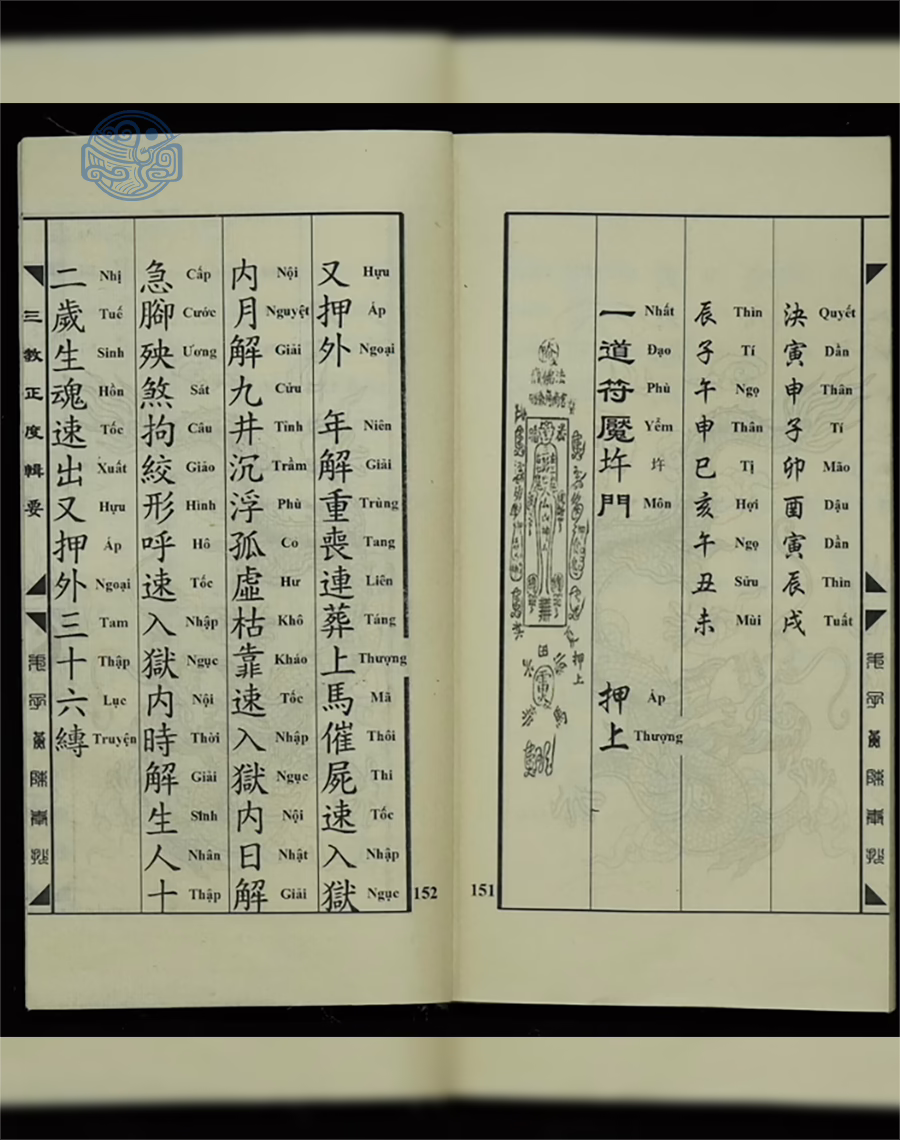 決 Quyết 寅 Dần 申 Thân 子 Tí 卯 Mão 酉 Dậu 寅 Dần 辰 Thìn 戌 Tuất
辰 Thìn 子 Tí 午 Ngọ 申 Thân 巳 Tị 亥 Hợi 午 Ngọ 丑 Sửu 未 Mùi
一 Nhất 道 Đạo 符 Phù 魘 Yểm 圤 圤 門 Môn 押 Áp 上 Thượng
押上
151
又 Hựu 押 Áp 外 Ngoại 年 Niên 解 Giải 重 Trùng 喪 Tang 連 Liên 葬 Táng 上 Thượng 馬 Mã 催 Thôi 屍 Thi 速 Tốc 入 Nhập 獄 Ngục
内 Nội 月 Nguyệt 解 Giải 九 Cửu 井 Tỉnh 沉 Trầm 浮 Phù 孤 Co 虛 Hư 枯 Khô 靠 Kháo 速 Tốc 入 Nhập 獄 Ngục 内 Nội 日 Nhật 解 Giải
急 Cấp 腳 Cước 殃 Ương 煞 Sát 拘 Câu 絞 Giảo 形 Hình 呼 Hô 速 Tốc 入 Nhập 獄 Ngục 内 Nội 時 Thời 解 Giải 生 Sinh 人 Nhân 十 Thập
二 Nhị 歲 Tuế 生 Sinh 魂 Hồn 速 Tốc 出 Xuất 又 Hựu 押 Áp 外 Ngoại 三 Tam 十 Thập 六 Lục 縳 Truyện
三教正度輯要
152